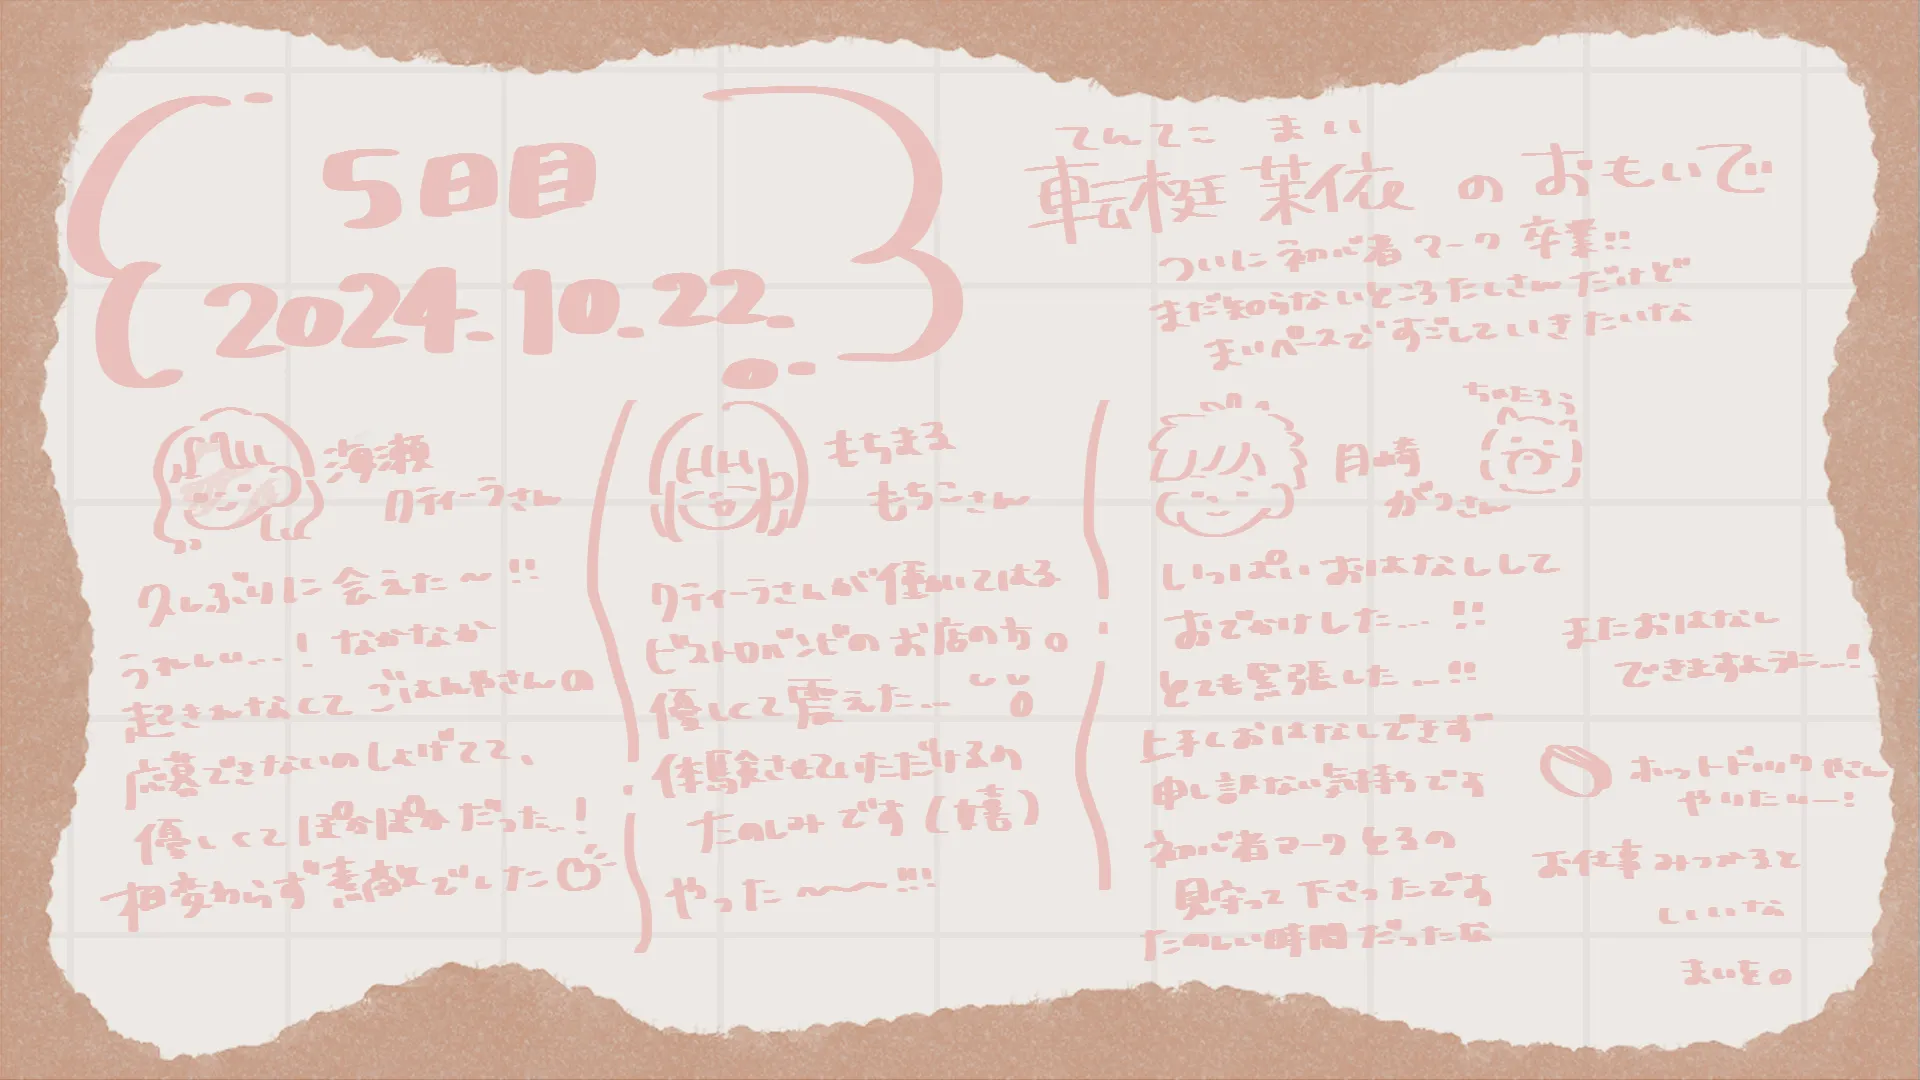 5日目
2024.10.22.
てんてこ まい
転梃 茉依 のおもいで
ついに初心者マーク 卒業!!
まだ知らないところたくさんだけど
まいペースですごしていきたいな
海瀬
クティーラさん
久しぶりに会えた〜!!
うれしい…! なかなか
起きれなくてごはんやさんの
応募できないのしょげてて、
優しくてぽかぽかだった…!
相変わらず素敵でした
もちまる
もちこさん
クティーラさんが働いてはる
ビストロベンゼのお店の方。
優しくて震えた…
体験させていただけるの
たのしみです(嬉)
やった〜〜!!!
月崎
がっさん
ちゃたろう
いっぱいおはなしして
おでかけした…!!
とても緊張した…!!
上手くおはなしできず
申し訳ない気持ちです
初心者マークとるの
見守って下さったです
たのしい時間だったな
またおはなし
できますように…!
ホットドックやさん
やりたいー!
お仕事みつかると
いいな
まいもの